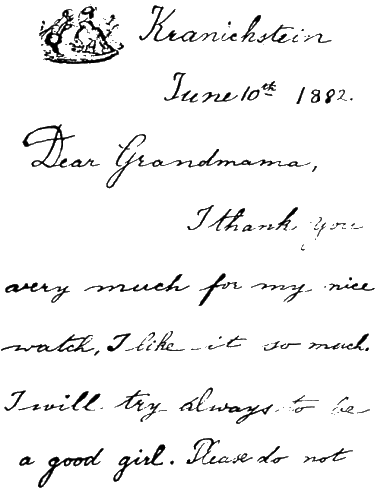 Kranichstein
June 10th 1882.
Dear Grandmama,
I thank you
very much for my nice
watch, I like it so much.
I will try always to be
a good girl. Please do not